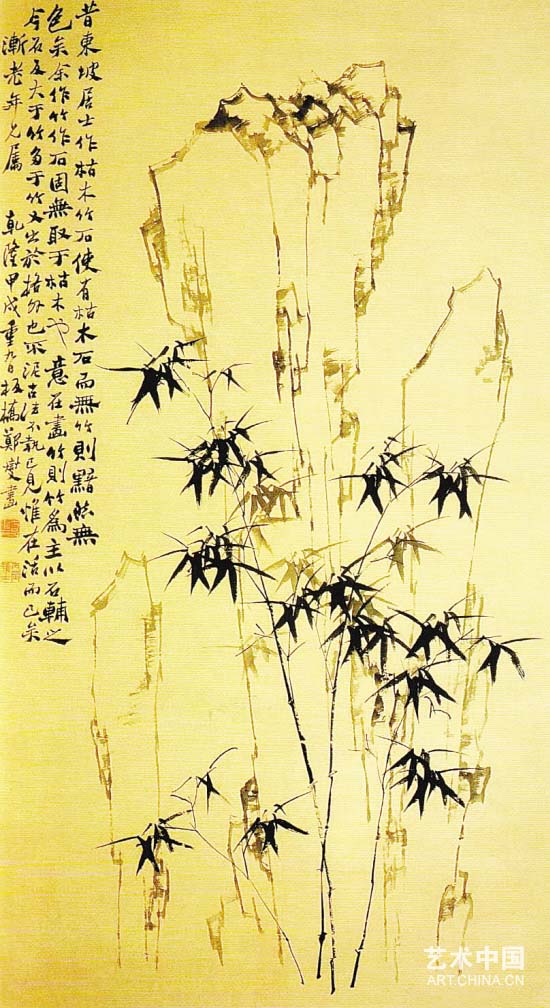 昔東坡居士作枯木竹石使有枯木石而無竹則黯然無
色矣余作竹作石固無取于枯木也意在畫竹則竹為主以石輔之
今石反大于竹多于竹又出於格外也不泥古法不執己見惟在活而已矣
漸老年兄屬 乾隆甲戌重九日板橋鄭燮畫
艺术中国
ART.CHINA.CN